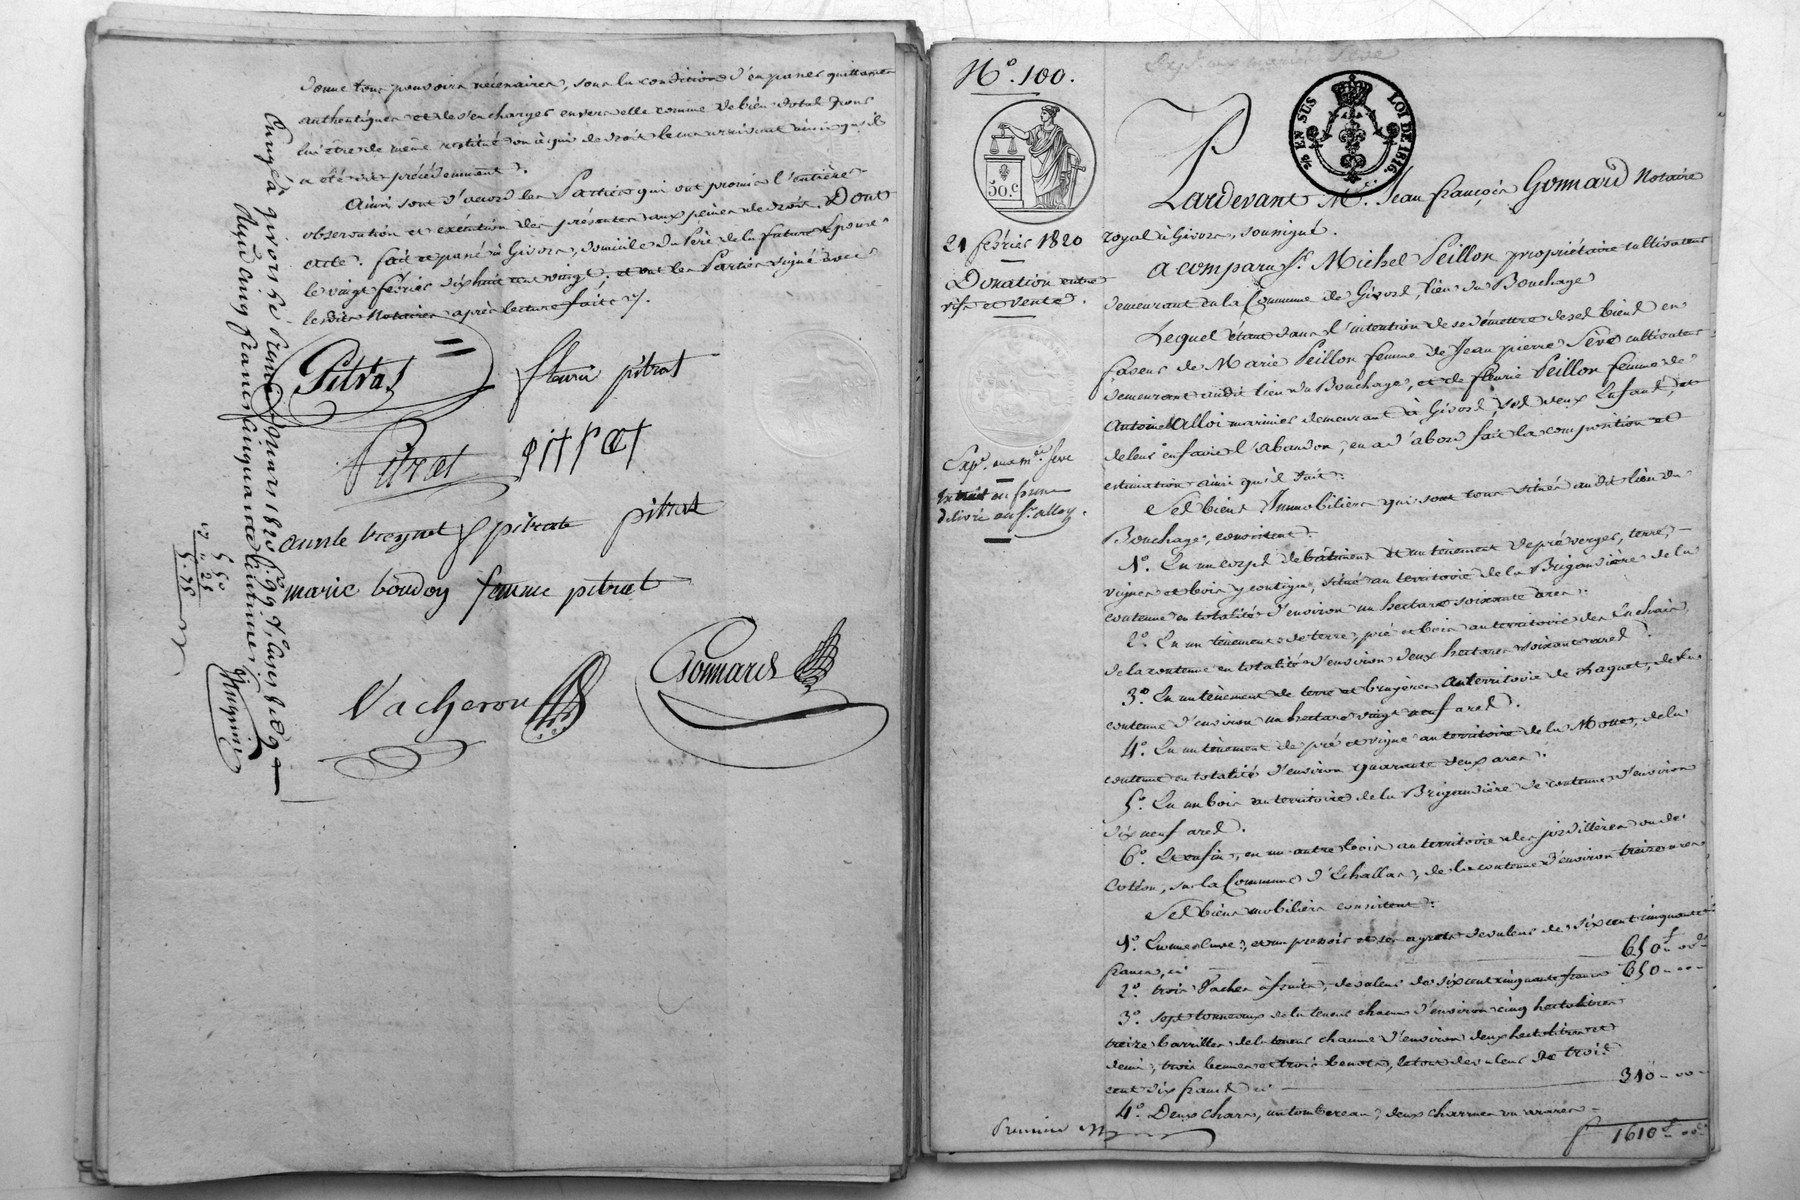 donne tous pouvoirs nécessaires, sous la condition d'en passer quittances
authentiques et de s'en charger envers elle comme de bien dotal pour
lui être de même restitué ou à qui de droit le cas arrivant ainsi qu'il
a été dit précédemment.
Ainsi sont d'accord les Parties qui ont promis l'entière
observation et exécution des présentes aux peines de droit. Dont
acte. fait et passé à Givors, domicile du Père de la future Epouse
le vingt février dix huit cent vingt; et ont les Parties signé avec
lesdits Notaires après lecture faite.
Pitrat
fleurie pitrat
Pitrat
pitrat
pitrat
pitrat
marie boudoy femme pitrat
Vacheron
Gonnard
Enregé à givors le mars 1820 fo. 99
Reçu cinq francs cinquante centimes
5 50
55
N°. 100.
50 c
21 février 1820
Donation entre
vifs et vente.
Exp. aux m. Seve
Extrait en forme
délivré au Sr. alloy
2/10 EN SUS LOI DE 1816.
Pardevant Me. Jean françois Gonnard Notaire
royal à Givors, soussigné.
A comparu Sr. Michel Peillon propriétaire cultivateur
demeurant en la Commune de Givors, lieu du Bouchage
Lequel étant dans l'intention de se démettre de ses biens en
faveur de Marie Peillon femme de Jean pierre Sève cultivateur
demeurant audit lieu du Bouchage, et de fleurie Peillon femme de
Antoine Alloi marinier demeurant à Givors, ses deux Enfants, et
de leur en faire l'abandon, en a d'abord fait la composition et
estimation ainsi qu'il suit.
Ses biens Immobiliers qui sont tous situés audit lieu du
Bouchage, consistent:
1°. En un corps de bâtiments et un tènement de pré verger, terre,
vignes et bois y contigus, situé au territoire de la Brigandière de la
contenue en totalité d'environ un hectare soixante ares.
2°. En un tènement de terre, pré et bois au territoire des Enchais,
de la contenue en totalité d'environ deux hectares soixante ares.
3°. En un tènement de terre et bruyères au territoire de chaguet, de la
contenue d'environ un hectare vingt neuf ares.
4°. En un tènement de pré et vigne au territoire de la Motte, de la
contenue en totalité d'environ quarante deux ares.
5°. En un bois au territoire de la Brigandière de contenue d'environ
dix neuf ares.
6°. Et enfin, en un autre bois au territoire des jordillères ou de
Coteon, sur la Commune d'Echallas, de la contenue d'environ treize ares
Ses biens mobiliers consistent:
1°. En une cuve, et un pressoir et ses agrets de valeur de six cent cinquante
francs, ci 650f 00c
2°. trois Vaches à fruits, de valeur de six cent cinquante francs 650 00
3°. sept tonneaux de la teneur chacun d'environ cinq hectolitres
treize barrilles de la teneur chacune d'environ deux hectolitres et
demi; trois bennes et trois benots, le tout de valeur de trois
cent dix francs ci 310 00
4°. Deux chars, un tombereau, deux charrues ou araires
1610f 00c